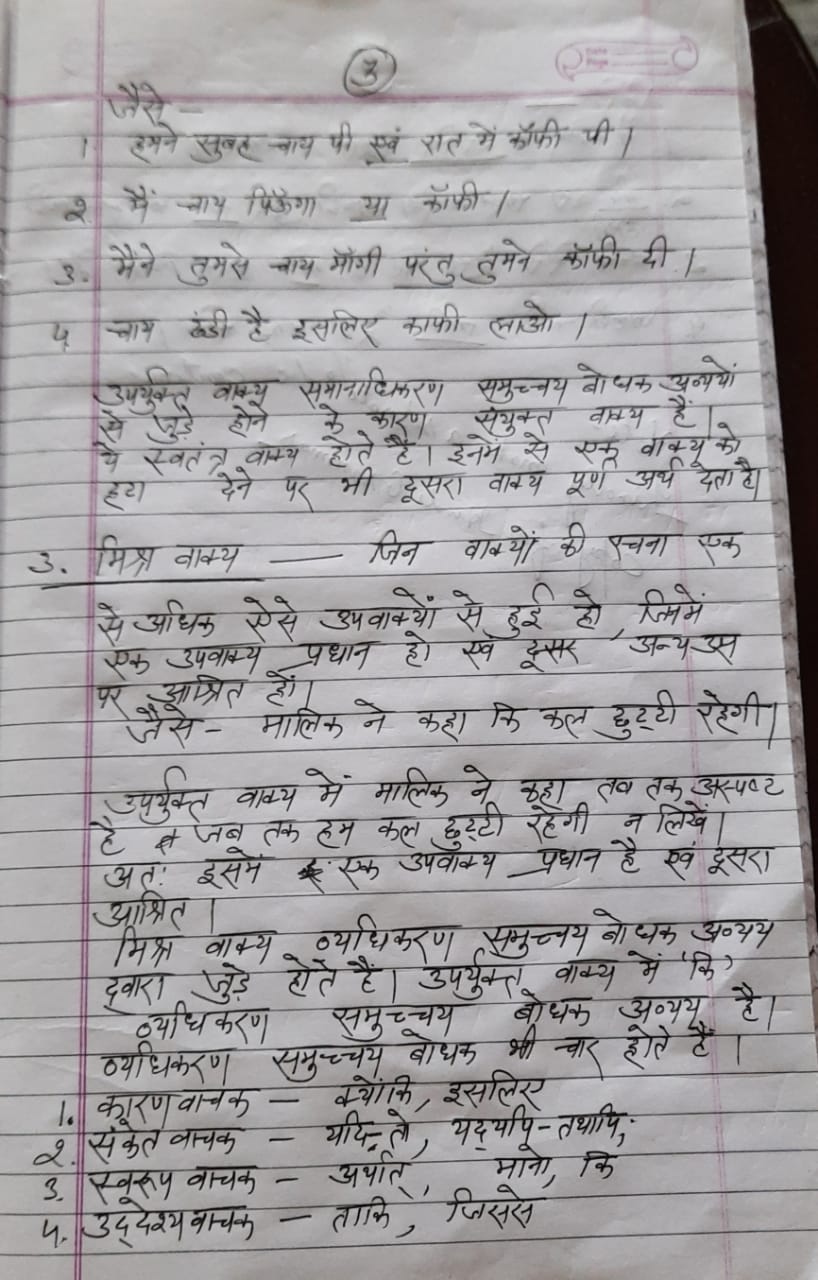 3
जैसे –
1 हमने सुबह चाय पी एवं रात में कॉफी पी।
2 मैं चाय पिऊँगा या कॉफी।
3. मैंने तुमसे चाय माँगी परंतु तुमने कॉफी दी।
4 चाय ठंडी है इसलिए काफी लाओ।
उपर्युक्त वाक्य समानाधिकरण समुच्चय बोधक अव्ययों
से जुड़े होने के कारण संयुक्त वाक्य हैं।
ये स्वतंत्र वाक्य होते हैं। इनमें से एक वाक्य को
हटा देने पर भी दूसरा वाक्य पूर्ण अर्थ देता है।
3. मिश्र वाक्य — जिन वाक्यों की रचना एक
से अधिक ऐसे उपवाक्यों से हुई हो, जिनमें
एक उपवाक्य प्रधान हो एवं दूसर अन्य उस
पर आश्रित हों।
जैसे – मालिक ने कहा कि कल छुट्टी रहेगी।
उपर्युक्त वाक्य में मालिक ने कहा तब तक अस्पष्ट
है जब तक हम कल छुट्टी रहेगी न लिखें।
अतः इसमें एक उपवाक्य प्रधान है एवं दूसरा
आश्रित।
मिश्र वाक्य व्यधिकरण समुच्चय बोधक अव्यय
द्वारा जुड़े होते हैं। उपर्युक्त वाक्य में 'कि'
व्यधिकरण समुच्चय बोधक अव्यय है।
व्यधिकरण समुच्चय बोधक भी चार होते हैं।
1. कारण वाचक – क्योंकि, इसलिए
2. संकेत वाचक – यदि-तो, यद्यपि-तथापि,
3. स्वरूप वाचक – अर्थात्, मानो, कि
4. उद्देश्य वाचक – ताकि, जिससे